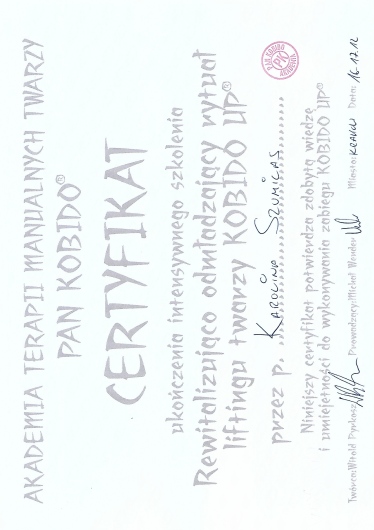 AKADEMIA TERAPII MANUALNYCH TWARZY
PAN KOBIDO®
CERTYFIKAT
ukończenia intensywnego szkolenia
Rewitalizująco odmładzający rytuał
liftingu twarzy KOBIDO UP®
przez p. Karolina Szumilas
Niniejszy certyfikat potwierdza zdobytą wiedzę
i umiejętności do wykonywania zabiegu KOBIDO UP®
Twórca: Witold Pyrkosz Prowadzący: Michał Wender Miasto: KRAKÓW Data: 16.12.12